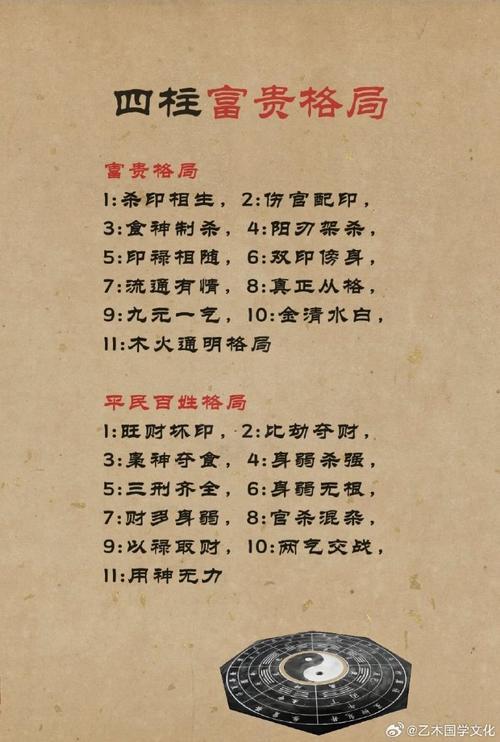 四柱富贵格局
富贵格局
1:杀印相生，2:伤官配印，
3:食神制杀，4:阳刃架杀，
5:印禄相随，6:双印傍身，
7:流通有情，8:真正从格，
9:九元一气，10:金清水白，
11:木火通明格局
平民百姓格局
1:旺财坏印，2:比劫夺财，
3:枭神夺食，4:身弱杀强，
5:三刑齐全，6:身弱无根，
7:财多身弱，8:官杀混杂，
9:以禄取财，10:两气交战，
11:用神无力
@乙木国学文化